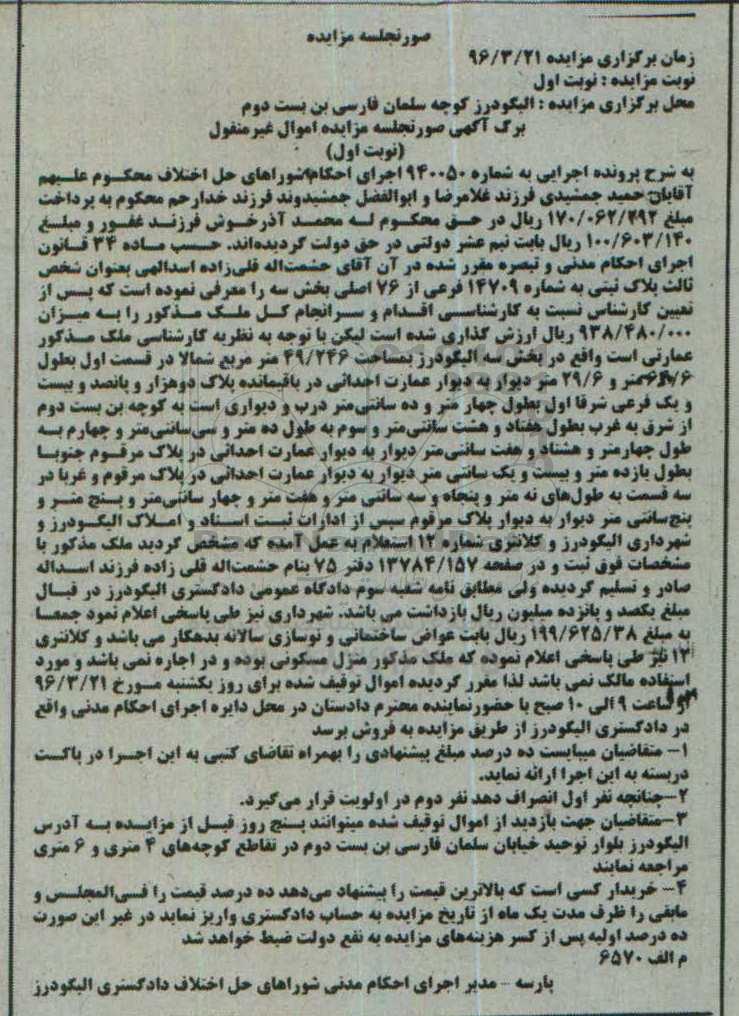 صورتجلسه مزایده
زمان برگزاری مزایده ۹۶/۳/۲۱
نوبت مزایده : نوبت اول
محل برگزاری مزایده : الیگودرز کوچه سلمان فارسی بن بست دوم
برگ آگهی صورتجلسه مزایده اموال غیرمنقول
(نوبت اول)
به شرح پرونده اجرایی به شماره ۹۴۰۰۵۰ اجرای احکام شوراهای حل اختلاف محکوم علیهم
آقایان حمید جمشیدی فرزند غلامرضا و ابوالفضل جمشیدوند فرزند خدارحم محکوم به پرداخت
مبلغ ۱۷۰/۰۶۲/۲۹۲ ریال در حق محکوم له محمد آذرخوش فرزند غفور و مبلغ
۱۰۰/۶۰۳/۱۴۰ ریال بابت نیم عشر دولتی در حق دولت گردیده‌اند. حسب ماده ۳۴ قانون
اجرای احکام مدنی و تبصره مقرر شده در آن آقای حشمت‌اله قلی‌زاده اسدالهی بعنوان شخص
ثالث پلاک ثبتی به شماره ۱۴۷۰۹ فرعی از ۷۶ اصلی بخش سه را معرفی نموده است که پس از
تعیین کارشناس نسبت به کارشناسی اقدام و سرانجام کل ملک مذکور را به میزان
۹۳۸/۴۸۰/۰۰۰ ریال ارزش گذاری شده است لیکن با توجه به نظریه کارشناسی ملک مذکور
عمارتی است واقع در بخش سه الیگودرز بمساحت ۴۹/۲۴۶ متر مربع شمالا در قسمت اول بطول
متر و ۲۹/۶ متر دیوار به دیوار عمارت احداثی در باقیمانده پلاک دوهزار و پانصد و بیست
و یک فرعی شرقا اول بطول چهار متر و ده سانتی‌متر درب و دیواری است به کوچه بن بست دوم
از شرق به غرب بطول هفتاد و هشت سانتی‌متر و سوم به طول ده متر و سی‌سانتی‌متر و چهارم به
طول چهارمتر و هشتاد و هفت سانتی‌متر دیوار به دیوار عمارت احداثی در پلاک مرقوم جنوبا
بطول یازده متر و بیست و یک سانتی متر دیوار به دیوار عمارت احداثی در پلاک مرقوم و غربا در
سه قسمت به طول‌های نه متر و پنجاه و سه سانتی متر و هفت متر و چهار سانتی‌متر و پنج متر و
پنج‌سانتی متر دیوار به دیوار پلاک مرقوم سپس از ادارات ثبت اسناد و املاک الیگودرز و
شهرداری الیگودرز و کلانتری شماره ۱۲ استعلام به عمل آمده که مشخص گردید ملک مذکور با
مشخصات فوق ثبت و در صفحه ۱۳۷۸۴/۱۵۷ دفتر ۷۵ بنام حشمت‌اله قلی زاده فرزند اسداله
صادر و تسلیم گردیده ولی مطابق نامه شعبه سوم دادگاه عمومی دادگستری الیگودرز در قبال
مبلغ یکصد و پانزده میلیون ریال بازداشت می باشد. شهرداری نیز طی پاسخی اعلام نمود جمعا
به مبلغ ۱۹۹/۶۲۵/۳۸ ریال بابت عواض ساختمانی و نوسازی سالانه بدهکار می باشد و کلانتری
۱۲ نیز طی پاسخی اعلام نموده که ملک مذکور منزل مسکونی بوده و در اجاره نمی باشد و مورد
استفاده مالک نمی باشد لذا مقرر گردیده اموال توقیف شده برای روز یکشنبه مورخ ۹۶/۳/۲۱
از ساعت ۹ الی ۱۰ صبح با حضورنماینده محترم دادستان در محل دایره اجرای احکام مدنی واقع
در دادگستری الیگودرز از طریق مزایده به فروش برسد
۱- متقاضیان میبایست ده درصد مبلغ پیشنهادی را بهمراه تقاضای کتبی به این اجرا در پاکت
دربسته به این اجرا ارائه نماید.
۲-چنانچه نفر اول انصراف دهد نفر دوم در اولویت قرار می‌گیرد.
۳-متقاضیان جهت بازدید از اموال توقیف شده میتوانند پنج روز قبل از مزایده به آدرس
الیگودرز بلوار توحید خیابان سلمان فارسی بن بست دوم در تقاطع کوچه‌های ۴ متری و ۶ متری
مراجعه نمایند
۴- خریدار کسی است که بالاترین قیمت را پیشنهاد می‌دهد ده درصد قیمت را فی‌المجلس و
مابقی را ظرف مدت یک ماه از تاریخ مزایده به حساب دادگستری واریز نماید در غیر این صورت
ده درصد اولیه پس از کسر هزینه‌های مزایده به نفع دولت ضبط خواهد شد
م الف ۶۵۷۰
پارسه - مدیر اجرای احکام مدنی شوراهای حل اختلاف دادگستری الیگودرز